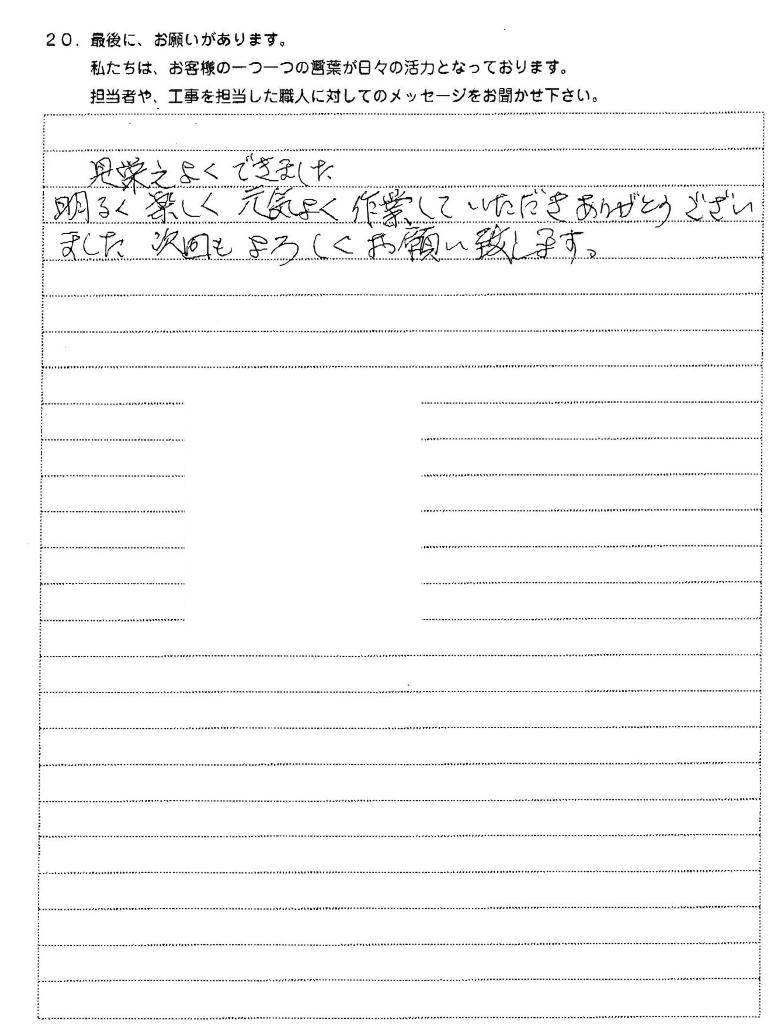 20．最後に、お願いがあります。
私たちは、お客様の一つ一つの言葉が日々の活力となっております。
担当者や、工事を担当した職人に対してのメッセージをお聞かせ下さい。
見栄えよくできました
明るく楽しく元気よく作業していただきありがとうござい
ました次回もよろしくお願い致します。